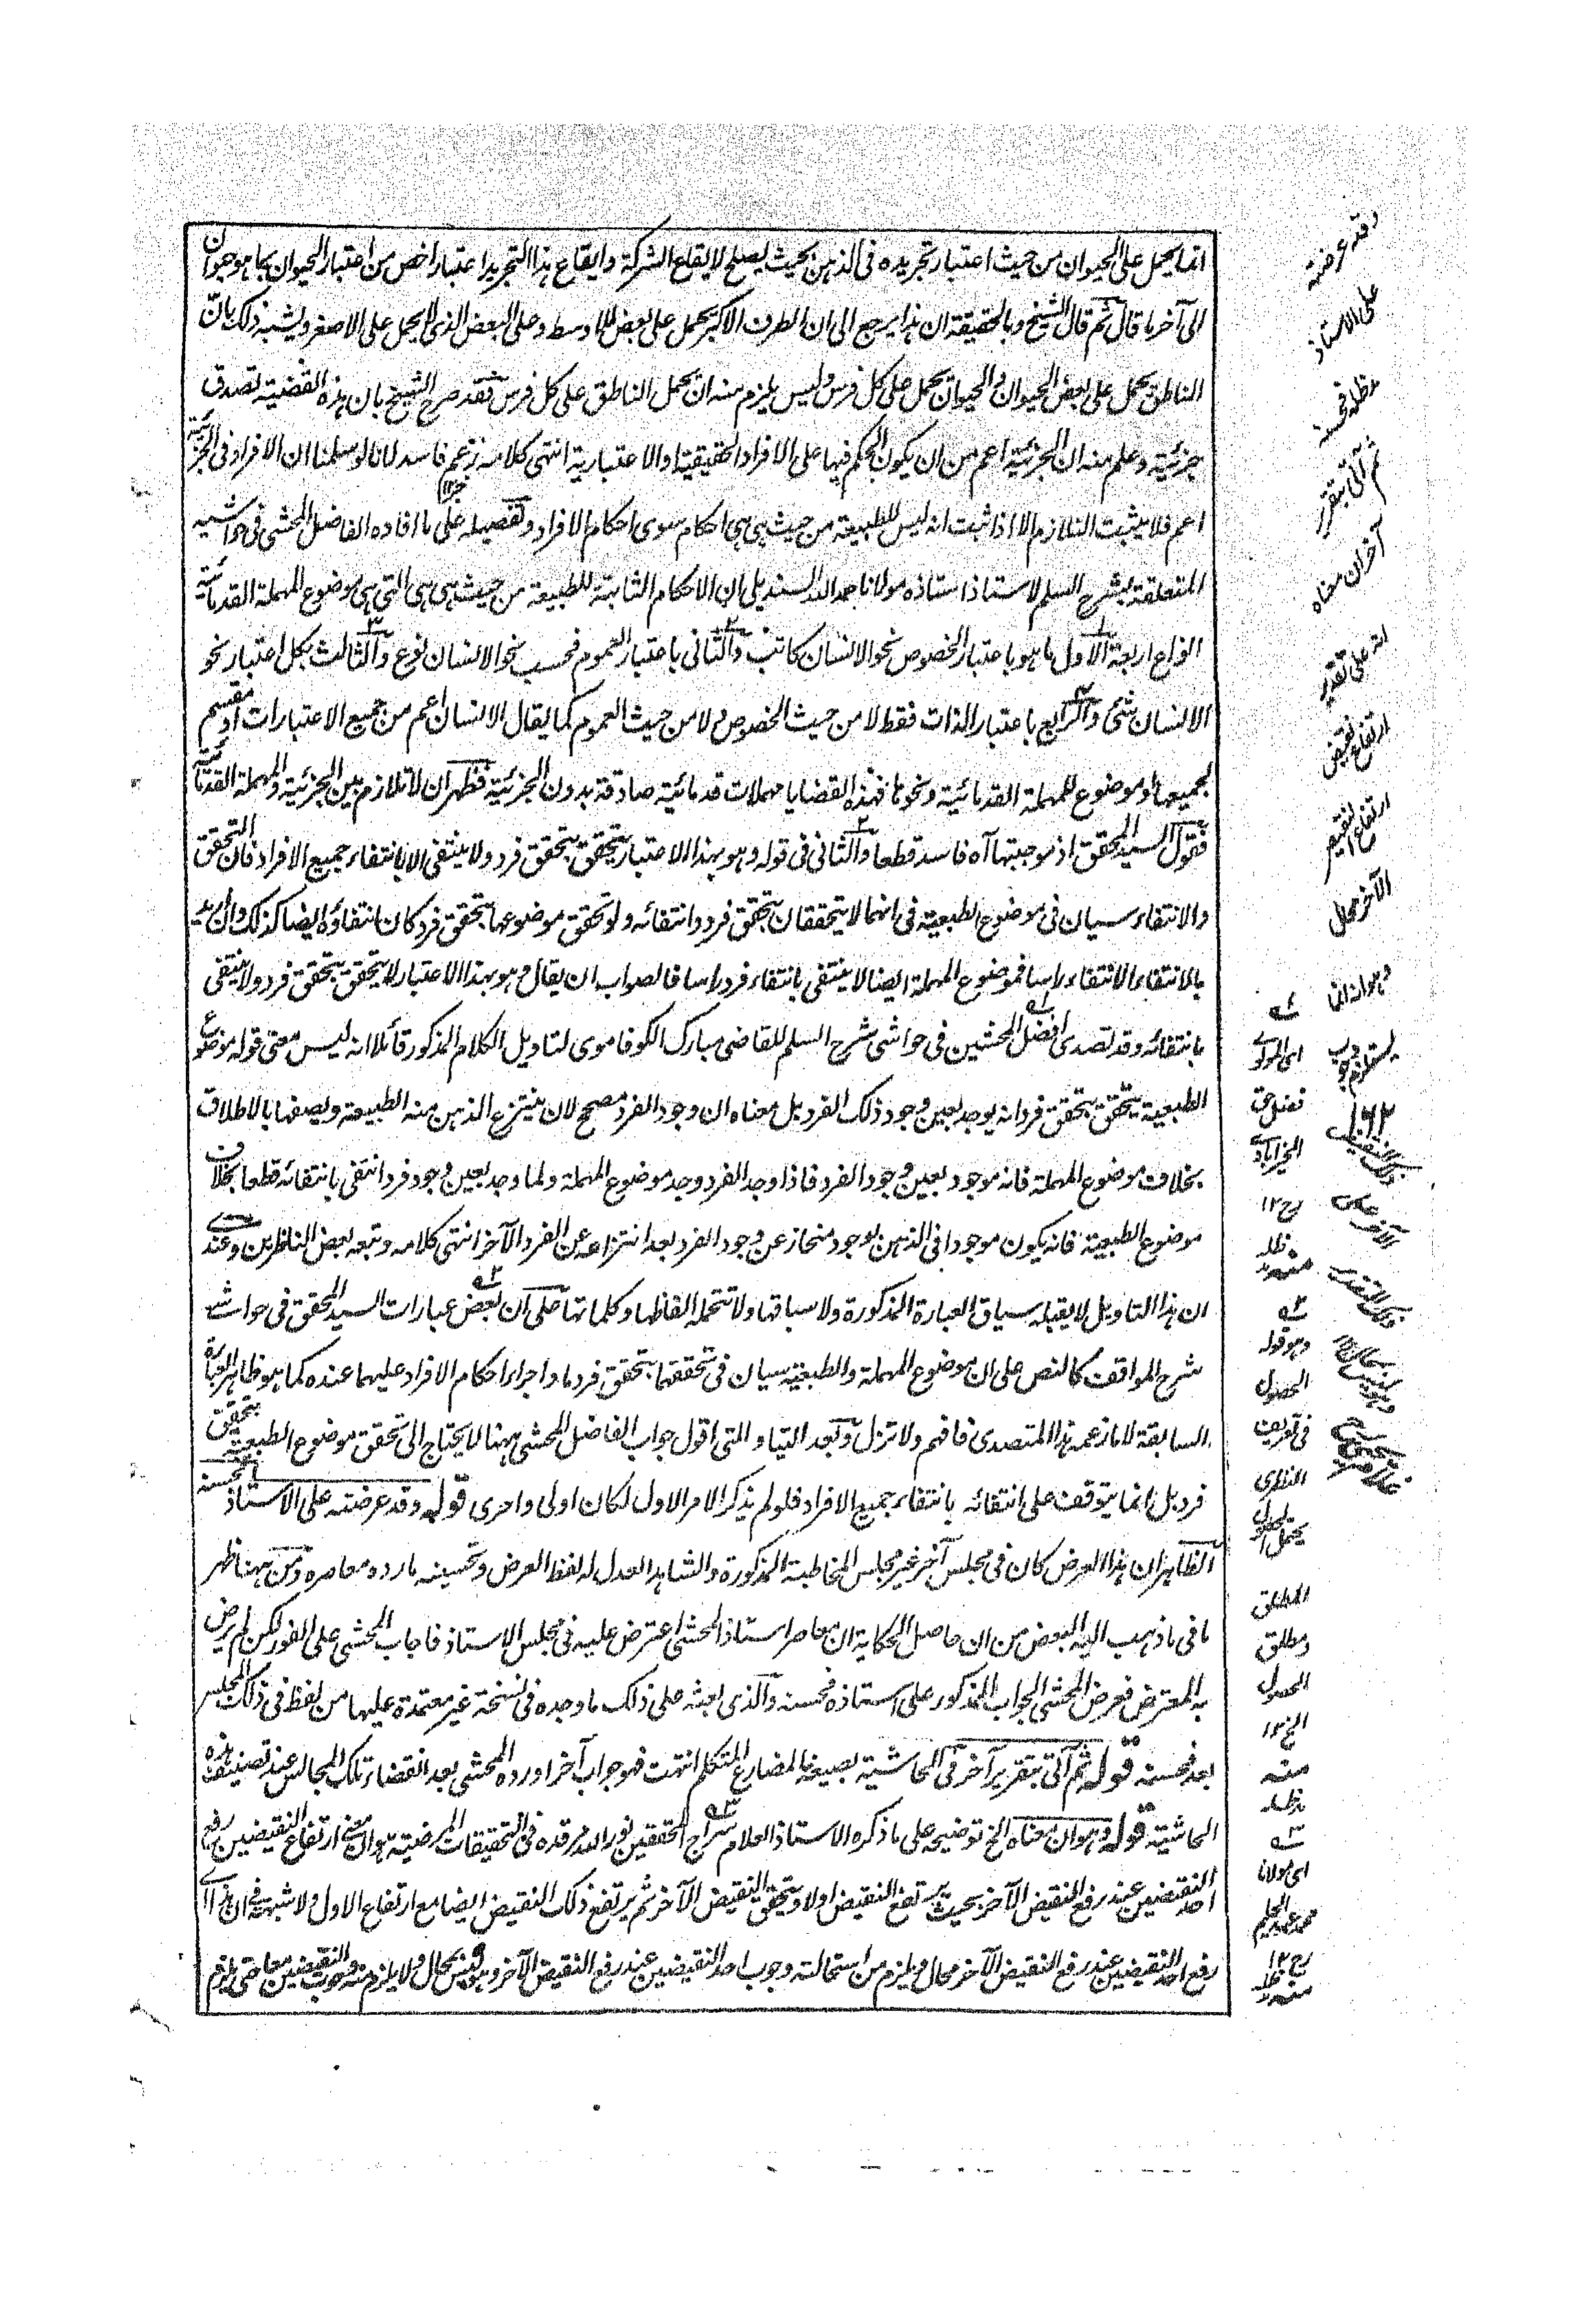 انما يحمل على الحيوان من حيث اعتبار تجريده فى الذهن بحيث يصلح لايقاع الشركة وايقاع هذا التجريد اعتبار اخص من اعتبار الحيوان بما هو حيوان
الى آخر ما قال ثم قال الشيخ وبالحقيقة ان هذا يرجع الى ان الطرف الاكبر يحمل على بعض الاوسط وعلى البعض الذى لا يحمل على الاصغر ويشبه ذلك بان
الناطق يحمل على بعض الحيوان والحيوان يحمل على كل فرس وليس يلزم منه ان يحمل الناطق على كل فرس فقد صرح الشيخ بان هذه القضية تصدق
جزئية وعلم منه ان الجزئية اعم من ان يكون الحكم فيها على الافراد الحقيقية او الاعتبارية انتهى كلامه زعم فاسد لانا لو سلمنا ان الافراد فى الجزئية
اعم فلا يثبت التلازم الا اذا ثبت انه ليس للطبيعة من حيث هى هى احكام سوى احكام الافراد وتفصيله على ما افاده الفاضل المحشى فى حواشيه
المتعلقة بشرح السلم لاستاذ استاذه مولانا حمد الله السنديلى ان الاحكام الثابتة للطبيعة من حيث هى هى التى هى موضوع المهملة القدمائية
انواع اربعة الاول ما هو باعتبار الخصوص نحو الانسان كاتب والثانى باعتبار العموم فحسب نحو الانسان نوع والثالث بكل اعتبار نحو
الانسان شئ والرابع باعتبار الذات فقط لا من حيث الخصوص ولا من حيث العموم كما يقال الانسان اعم من جميع الاعتبارات او مقسم
لجميعها وموضوع للمهملة القدمائية ونحوها فهذه القضايا مهملات قدمائية صادقة بدون الجزئية فظهر ان لا تلازم بين الجزئية والمهملة القدمائية
فقول السيد المحقق اذ موجبتها آه فاسد قطعا والثانى فى قوله وهو بهذا الاعتبار يتحقق بتحقق فرد ولا ينتفى الا بانتفاء جميع الافراد فان التحقق
والانتفاء سيان فى موضوع الطبيعية فى انهما لا يتحققان بتحقق فرد وانتفائه ولو تحقق موضوعها بتحقق فرد كان انتفاؤه ايضا كذلك وان اريد
بالانتفاء الانتفاء راسا فموضوع المهملة ايضا لا ينتفى بانتفاء فرد راسا فالصواب ان يقال هو بهذا الاعتبار لا يتحقق بتحقق فرد ولا ينتفى
بانتفائه وقد تصدى افضل المحشين فى حواشى شرح السلم للقاضى مبارك الكوفاموى لتاويل الكلام المذكور قائلا انه ليس معنى قوله موضوع
الطبيعية يتحقق بتحقق فرد انه يوجد بعين وجود ذلك الفرد بل معناه ان وجود الفرد مصحح لان ينتزع الذهن منه الطبيعة ويصفها بالاطلاق
بخلاف موضوع المهملة فانه موجود بعين وجود الفرد فاذا وجد الفرد وجد موضوع المهملة ولما وجد بعين وجود فرد انتفى بانتفائه قطعا بخلاف
موضوع الطبيعية فانه يكون موجودا فى الذهن بوجود منحاز عن وجود الفرد بعد انتزاعه عن الفرد الآخر انتهى كلامه وتبعه بعض الناظرين وعندى
ان هذا التاويل لا يقبله سياق العبارة المذكورة ولا سباقها ولا تتحمله الفاظها وكلماتها على ان بعض عبارات السيد المحقق فى حواشى
شرح المواقف كالنص على ان موضوع المهملة والطبعية سيان فى تحققهما بتحقق فرد ما واجراء احكام الافراد عليهما عنده كما هو ظاهر العبارة
السابقة لا ما زعمه هذا المتصدى فافهم ولا تزل وبعد اللتيا والتى اقول جواب الفاضل المحشى ههنا لا يحتاج الى تحقق موضوع الطبيعية بتحقق
فرد بل انما يتوقف على انتفائه بانتفاء جميع الافراد فلو لم يذكر الامر الاول لكان اولى واحرى قوله وقد عرضته على الاستاذ فحسنه
الظاهر ان هذا العرض كان فى مجلس آخر غير مجلس المخاطبة المذكورة والشاهد العدل له لفظ العرض وتحسينه ما رده معاصره ومن ههنا ظهر
ما فى ما ذهب اليه البعض من ان حاصل الحكاية ان معاصر استاذ المحشى اعترض عليه فى مجلس الاستاذ فاجاب المحشى على الفور لكن لم يرض
به المعترض فعرض المحشى الجواب المذكور على استاذه فحسنه والذى ابعثه على ذلك ما وجده فى نسخة غير معتمدة عليها من لفظ فى ذلك المجلس
بعد فحسنه قوله ثم آتى بتقرير آخر فى الحاشية بصيغة المضارع المتكلم انتهت فهو جواب آخر اورده المحشى بعد انقضاء تلك المجالس عند تصنيف هذه
الحاشية قوله وهو ان معناه الخ توضيحه على ما ذكره الاستاذ العلام سراج المحققين نور الله مرقده فى التحقيقات المرضية هو ان معنى ارتفاع النقيضين رفع
احد النقيضين عند رفع النقيض الآخر بحيث يرتفع النقيض اولا ويتحقق النقيض الآخر ثم يرتفع ذلك النقيض ايضا مع ارتفاع الاول ولا شبهة فى ان هذا اى
رفع احد النقيضين عند رفع النقيض الآخر محال فيلزم من استحالته وجوب احد النقيضين عند رفع النقيض الآخر وهو ليس بمحال ولا يلزم منه وجوب النقيضين معا حتى يلزم
وقد عرضته
على الاستاذ
مد ظله فحسنه
ثم آتى بتقرير
آخر ان معناه
انه على تقدير
ارتفاع نقيض
ارتفاع النقيض
الآخر محال
وهو انه انما
يستلزم وجوب
١٦٢
اى المولوى
فضل حق
الخيرآبادى
رح ١٢
منه مد ظله
وهو قوله
الحصول
فى تعريف
النظرى
يحتمل الحصول
المطلق
ومطلق
الحصول
الخ ١٢
منه
مد ظله
اى مولانا
محمد عبد الحليم
رح ١٢
منه مد ظله